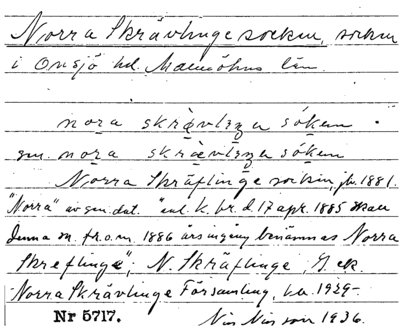 Norra Skrävlinge socken, socken
i Onsjö hd. Malmöhus län.
nora skrävlıŋa sókən
gm. nora skrävlıŋa sókən
Norra Skräflinge socken, jb. 1881.
"Norra" av gen. dat. "enl. k. br. d. 17 apr. 1885 skall
denna sn. fr. o. m. 1886 års ingång benämnas Norra
Skreflinge"; N. Skräflinge, G. ek.
Norra Skrävlinge Församling, ka. 1929-
Nr 5717.
Nils Nilsson 1936.